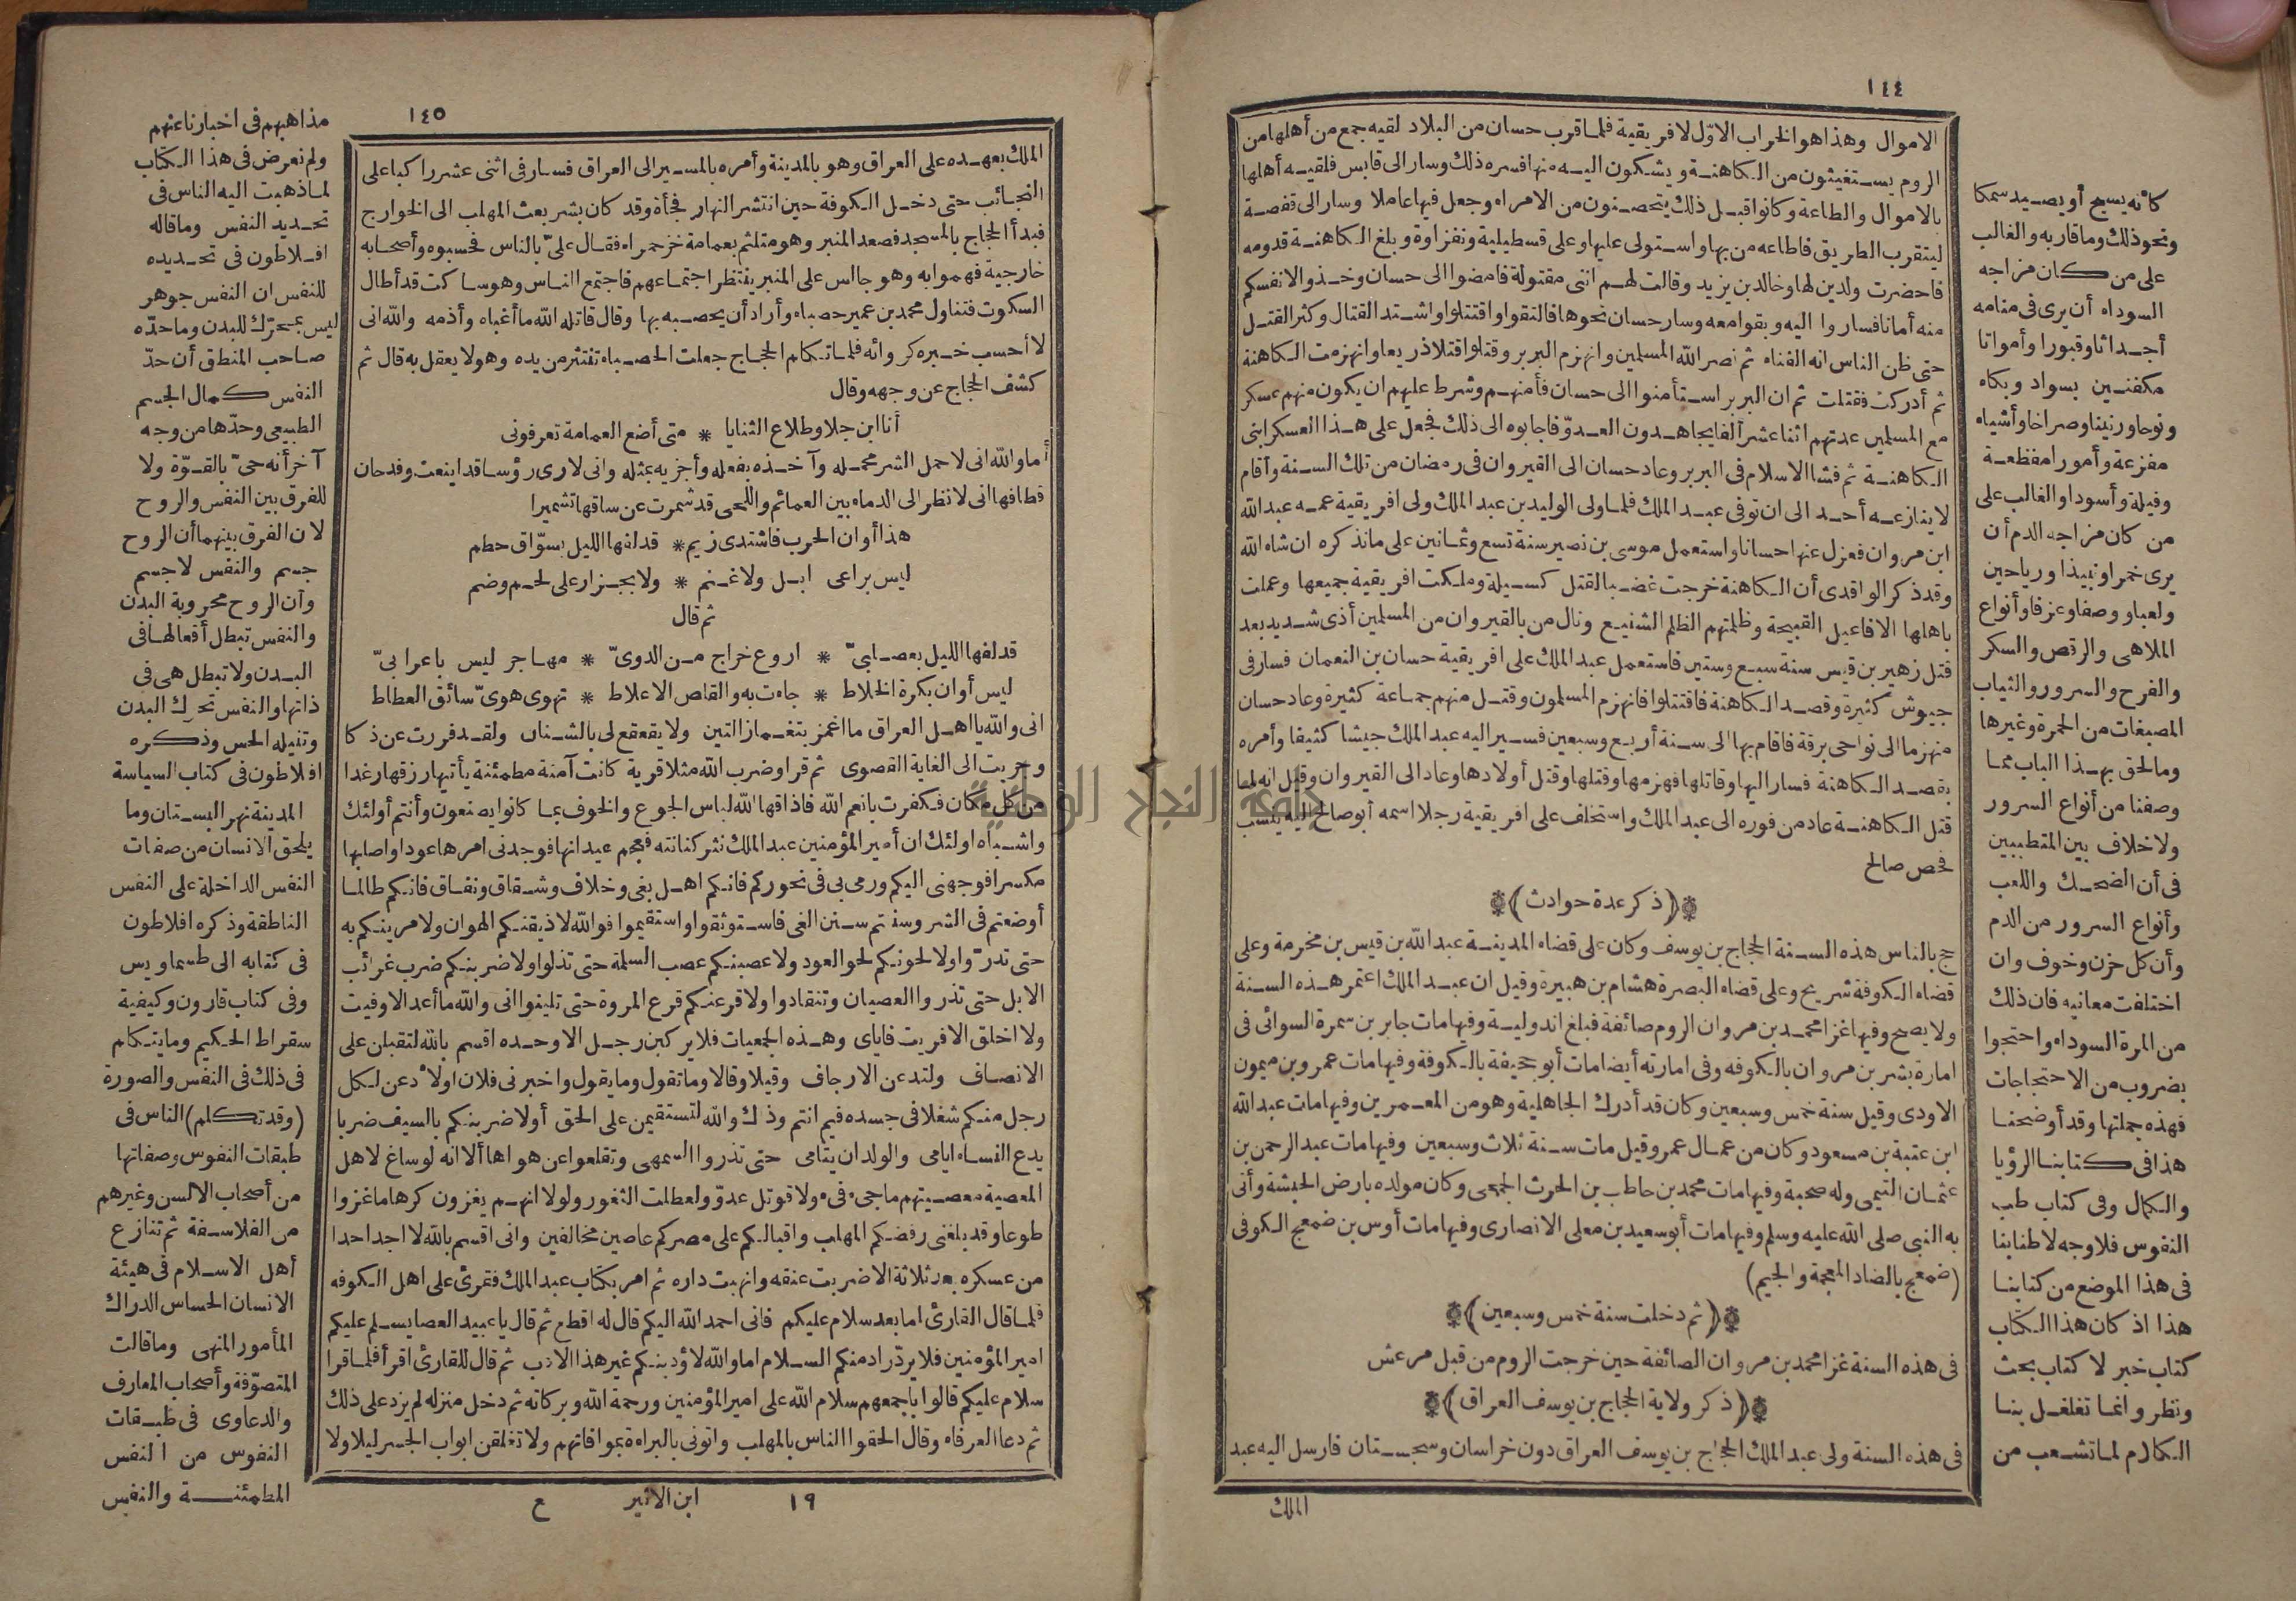 ١٤٤
الاموال وهذا هو الخراب الاوّل لافريقية فلما قرب حسان من البلاد لقيه جمع من أهلها من
الروم يستغيثون من الكاهنة ويشكون اليه منها فسره ذلك وسار الى قابس فلقيه أهلها
بالاموال والطاعة وكانوا قبل ذلك يتحصنون من الامراء وجعل فيها عاملا وسار الى قفصة
ليتقرب الطريق فاطاعه من بها واستولى عليها وعلى قسطيلية ونفزاوة وبلغ الكاهنة قدومه
فاحضرت ولدين لها وخالد بن يزيد وقالت لهم اننى مقتولة فامضوا الى حسان وخذوا لانفسكم
منه أمانا فساروا اليه وبقوا معه وسار حسان نحوها فالتقوا واقتتلوا واشتد القتال وكثر القتل
حتى ظن الناس انه الفناء ثم نصر الله المسلمين وانهزم البربر وقتلوا قتلا ذريعا وانهزمت الكاهنة
ثم أدركت فقتلت ثم ان البربر استأمنوا الى حسان فأمنهم وشرط عليهم ان يكون منهم عسكر
مع المسلمين عدتهم اثنا عشر ألفا يجاهدون العدوّ فاجابوه الى ذلك فجعل على هذا العسكر ابنى
الكاهنة ثم فشا الاسلام فى البربر وعاد حسان الى القيروان فى رمضان من تلك السنة وأقام
لا ينازعه أحد الى ان توفى عبد الملك فلما ولى الوليد بن عبد الملك ولى افريقية عمه عبد الله
ابن مروان فعزل عنها حسانا واستعمل موسى بن نصير سنة تسع وثمانين على ما نذكره ان شاء الله
وقد ذكر الواقدى أن الكاهنة خرجت غضبا لقتل كسيلة وملكت افريقية جميعها وعملت
باهلها الافاعيل القبيحة وظلمتهم الظلم الشنيع ونال من بالقيروان من المسلمين أذى شديد بعد
قتل زهير بن قيس سنة سبع وستين فاستعمل عبد الملك على افريقية حسان بن النعمان فسار فى
جيوش كثيرة وقصد الكاهنة فاقتتلوا فانهزم المسلمون وقتل منهم جماعة كثيرة وعاد حسان
منهزما الى نواحى برقة فاقام بها الى سنة أربع وسبعين فسير اليه عبد الملك جيشا كثيفا وأمره
بقصد الكاهنة فسار اليها وقاتلها فهزمها وقتلها وقتل أولادها وعاد الى القيروان وقيل انه لما
قتل الكاهنة عاد من فوره الى عبد الملك واستخلف على افريقية رجلا اسمه أبو صالح اليه ينسب
فحص صالح
﴿ذكر عدة حوادث﴾
حج بالناس هذه السنة الحجاج بن يوسف وكان على قضاء المدينة عبد الله بن قيس بن مخرمة وعلى
قضاء الكوفة شريح وعلى قضاء البصرة هشام بن هبيرة وقيل ان عبد الملك اعتمر هذه السنة
ولا يصح وفيها غزا محمد بن مروان الروم صائفة فبلغ اندولية وفيها مات جابر بن سمرة السوائى فى
امارة بشر بن مروان بالكوفه وفى امارته أيضا مات أبو جحيفة بالكوفة وفيها مات عمرو بن ميمون
الاودى وقيل سنة خمس وسبعين وكان قد أدرك الجاهلية وهو من المعمرين وفيها مات عبد الله
ابن عتبة بن مسعود وكان من عمال عمر وقيل مات سنة ثلاث وسبعين وفيها مات عبد الرحمن بن
عثمان التيمى وله صحبة وفيها مات محمد بن حاطب بن الحرث الجمحى وكان مولده بارض الحبشة وأتى
به النبى صلى الله عليه وسلم وفيها مات أبو سعيد بن معلى الانصارى وفيها مات أوس بن ضمعج الكوفى
(ضمعج بالضاد المعجمة والجيم)
﴿ثم دخلت سنة خمس وسبعين﴾
فى هذه السنة غزا محمد بن مروان الصائفة حين خرجت الروم من قبل مرعش
﴿ذكر ولاية الحجاج بن يوسف العراق﴾
فى هذه السنة ولى عبد الملك الحجاج بن يوسف العراق دون خراسان وسجستان فارسل اليه عبد
الملك
كأنه يسبح أو يصيد سمكا
ونحو ذلك وما قاربه والغالب
على من كان مزاجه
السوداء أن يرى فى منامه
أجداثا وقبورا وأمواتا
مكفنين بسواد وبكاء
ونوحا ورنينا وصراخا وأشياء
مفزعة وأمورا مفظعة
وفيلة وأسودا والغالب على
من كان مزاجه الدم أن
يرى خمرا ونبيذا ورياحين
ولعبا ووصفا وعزفا وأنواع
الملاهى والرقص والسكر
والفرح والسرور والثياب
المصبغات من الحمرة وغيرها
وما لحق بهذا الباب مما
وصفنا من أنواع السرور
ولا خلاف بين المتطببين
فى أن الضحك واللعب
وأنواع السرور من الدم
وأن كل حزن وخوف وان
اختلفت معانيه فان ذلك
من المرة السوداء واحتجوا
بضروب من الاحتجاجات
فهذه جملتها وقد أوضحنا
هذا فى كتابنا الرؤيا
والكمال وفى كتاب طب
النفوس فلا وجه لاطنابنا
فى هذا الموضع من كتابنا
هذا اذ كان هذا الكتاب
كتاب خبر لا كتاب بحث
ونظر وانما تغلغل بنا
الكلام لما تشعب من
١٤٥
الملك بعهده على العراق وهو بالمدينة وأمره بالمسير الى العراق فسار فى اثنى عشر راكبا على
النجائب حتى دخل الكوفة حين انتشر النهار فجأة وقد كان بشر بعث المهلب الى الخوارج
فبدأ الحجاج بالمسجد فصعد المنبر وهو متلثم بعمامة خز حمراء فقال علىّ بالناس فحسبوه وأصحابه
خارجية فهموا به وهو جالس على المنبر ينتظر اجتماعهم فاجتمع الناس وهو ساكت قد أطال
السكوت فتناول محمد بن عمير حصباء وأراد أن يحصبه بها وقال قاتله الله ما أغباه وأذمه والله انى
لا أحسب خبره كروائه فلما تكلم الحجاج جعلت الحصباء تنتثر من يده وهو لا يعقل به قال ثم
كشف الحجاج عن وجهه وقال
أنا ابن جلا وطلاع الثنايا * متى أضع العمامة تعرفونى
أما والله انى لاحمل الشر محمله وآخذه بفعله وأجزيه بمثله وانى لارى رؤسا قد اينعت وقد حان
قطافها انى لانظر الى الدماء بين العمائم واللحى قد شمرت عن ساقها تشميرا
هذا أوان الحرب فاشتدى زيم * قد لفها الليل بسوّاق حطم
ليس براعى ابل ولا غنم * ولا بجزار على لحم وضم
ثم قال
قد لفها الليل بعصلبىّ * اروع خراج من الدوىّ * مهاجر ليس باعرابىّ
ليس أوان بكرة الخلاط * جاءت به والقلص الاعلاط * تهوى هوىّ سائق العطاط
انى والله يا اهل العراق ما اغمز بتغماز التين ولا يقعقع لى بالشنان ولقد فررت عن ذكا
وجريت الى الغاية القصوى ثم قرا وضرب الله مثلا قرية كانت آمنة مطمئنة يأتيها رزقها رغدا
من كل مكان فكفرت بانعم الله فاذاقها الله لباس الجوع والخوف بما كانوا يصنعون وأنتم أولئك
واشباه اولئك ان أمير المؤمنين عبد الملك نثر كنانته فعجم عيدانها فوجدنى امرها عودا واصلبها
مكسرا فوجهنى اليكم ورمى بى فى نحوركم فانكم اهل بغى وخلاف وشقاق ونفاق فانكم طالما
أوضعتم فى الشر وسننتم سنن الغى فاستوثقوا واستقيموا فوالله لاذيقنكم الهوان ولامرينكم به
حتى تدرّوا ولالحونكم لحو العود ولاعصبنكم عصب السلمة حتى تذلوا ولاضربنكم ضرب غرائب
الابل حتى تذروا العصيان وتنقادوا ولاقرعنكم قرع المروة حتى تلينوا انى والله ما أعد الا وفيت
ولا اخلق الا فريت فاياى وهذه الجمعيات فلا يركبن رجل الا وحده اقسم بالله لتقبلن على
الانصاف ولتدعن الارجاف وقيلا وقالا وما تقول وما يقول واخبرنى فلان او لأدعن لكل
رجل منكم شغلا فى جسده فيم انتم وذلك والله لتستقيمن على الحق أو لاضربنكم بالسيف ضربا
يدع النساء ايامى والولدان يتامى حتى تذروا السمهى وتقلعوا عن هواها ألا انه لو ساغ لاهل
المعصية معصيتهم ما جبىء فىء ولا قوتل عدوّ ولعطلت الثغور ولولا انهم يغزون كرها ما غزوا
طوعا وقد بلغنى رفضكم المهلب واقبالكم على مصركم عاصين مخالفين وانى اقسم بالله لا اجد احدا
من عسكره بعد ثلاثة الا ضربت عنقه وانهبت داره ثم امر بكتاب عبد الملك فقرئ على اهل الكوفه
فلما قال القارئ اما بعد سلام عليكم فانى احمد الله اليكم قال له اقطع ثم قال يا عبيد العصا يسلم عليكم
امير المؤمنين فلا يردّ راد منكم السلام اما والله لاؤدبنكم غير هذا الادب ثم قال للقارئ اقرأ فلما قرا
سلام عليكم قالوا باجمعهم سلام الله على امير المؤمنين ورحمة الله وبركاته ثم دخل منزله لم يزد على ذلك
ثم دعا العرفاء وقال الحقوا الناس بالمهلب واتونى بالبراءة بموافاتهم ولا تغلقن ابواب الجسر ليلا ولا
١٩ ابن الاثير ع
مذاهبهم فى اخبارنا عنهم
ولم نعرض فى هذا الكتاب
لما ذهبت اليه الناس فى
تحديد النفس وما قاله
افلاطون فى تحديده
للنفس ان النفس جوهر
ليس بمتحرّك للبدن وما حدّه
صاحب المنطق أن حدّ
النفس كمال الجسم
الطبيعى وحدّها من وجه
آخر أنه حىّ بالقوّة ولا
للفرق بين النفس والروح
لان الفرق بينهما أن الروح
جسم والنفس لا جسم
وأن الروح محروية البدن
والنفس تبطل أفعالها فى
البدن ولا تبطل هى فى
ذاتها والنفس تحرك البدن
وتنيله الحس وذكره
افلاطون فى كتاب السياسة
المدينة نهر البستان وما
يلحق الانسان من صفات
النفس الداخلة على النفس
الناطقة وذكره افلاطون
فى كتابه الى طيماويس
وفى كتاب قارون وكيفية
سقراط الحكيم وما يتكلم
فى ذلك فى النفس والصورة
(وقد تكلم) الناس فى
طبقات النفوس وصفاتها
من أصحاب الالسن وغيرهم
من الفلاسفة ثم تنازع
أهل الاسلام فى هيئة
الانسان الحساس الدراك
المأمور المنهى وما قالت
المتصوّفة وأصحاب المعارف
والدعاوى فى طبقات
النفوس من النفس
المطمئنة والنفس
جامعة النجاح الوطنية